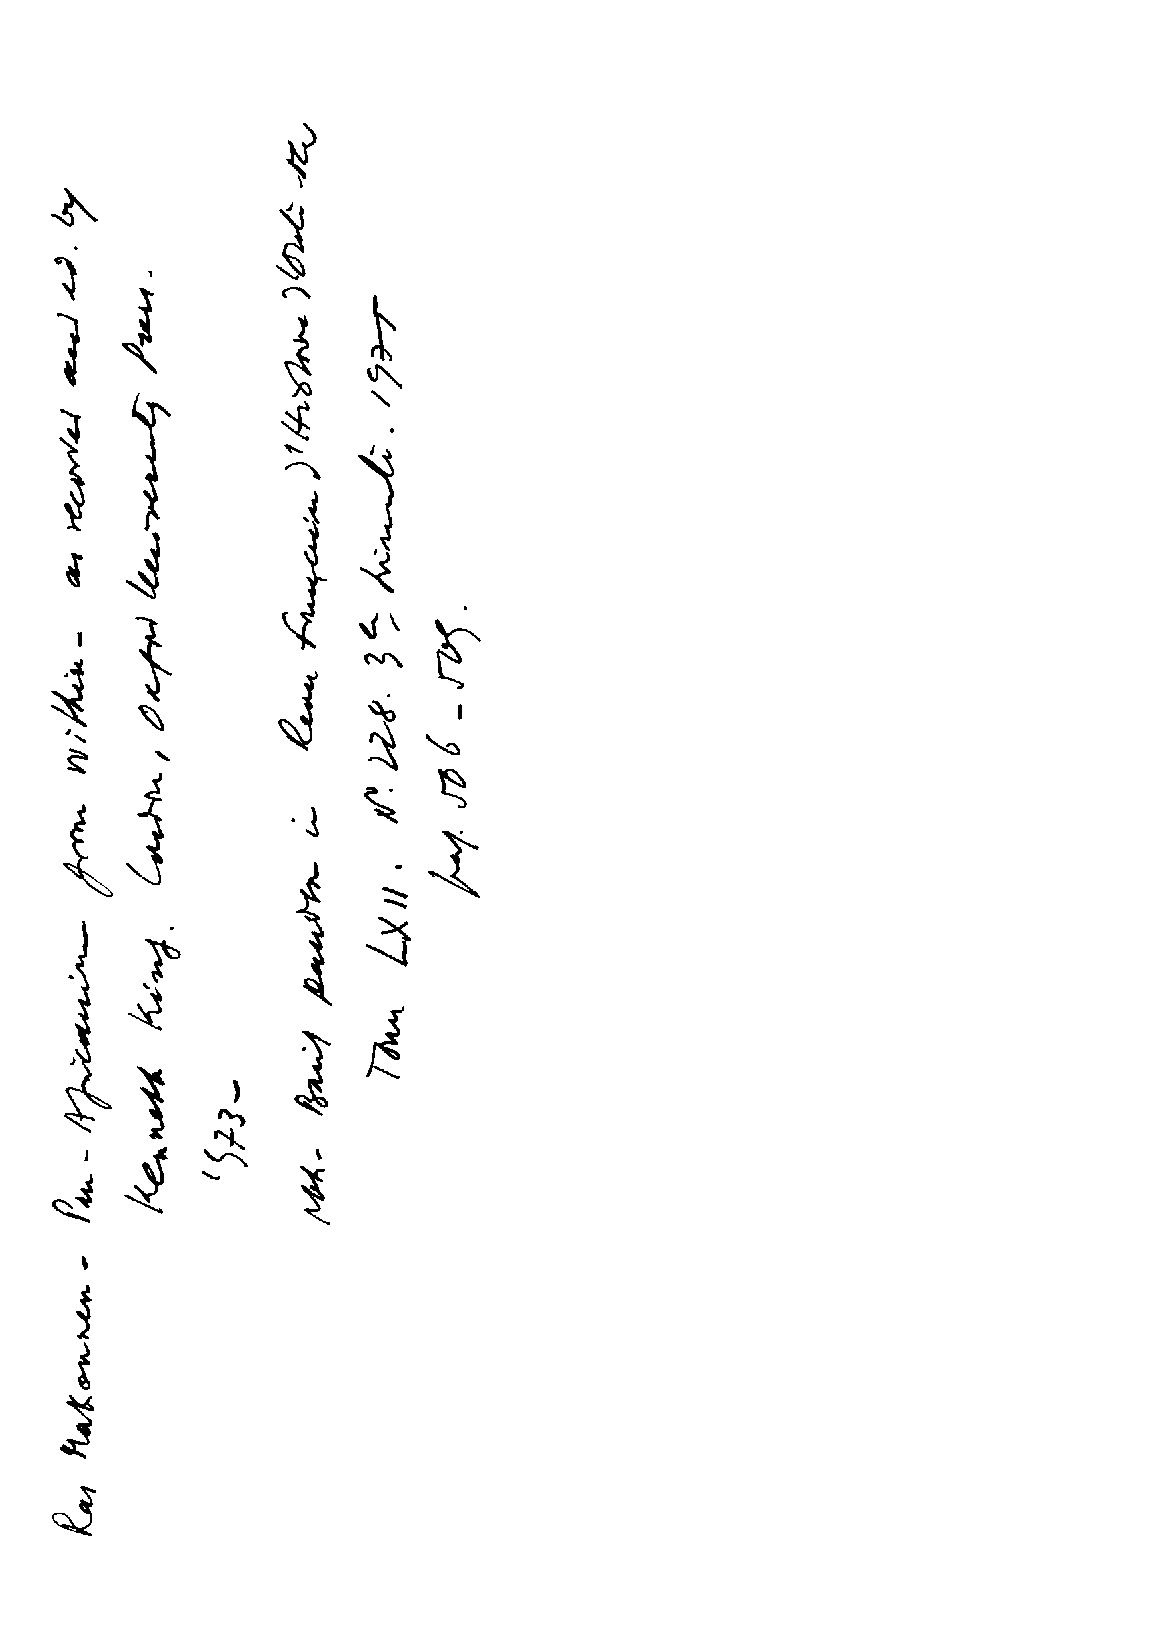 Ras Makonnen - Pan-Africanism from within - as recorded and ed. by
Kenneth King. London, Oxford University Press.
1973 -
Basil Davidson in Revue française d'Histoire d'Outre-Mer
Tome LXII. N°. 228. 3e trimestre. 1975
pag. 506 - 509.